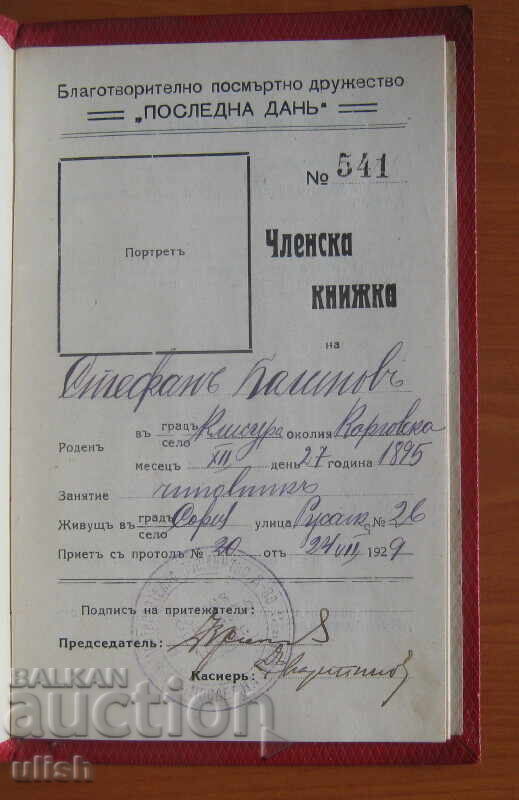 Благотворително посмъртно дружество
„ПОСЛЕДНА ДАНЬ“
№ 541
Портретъ
Членска
книжка
на
Стефанъ
Роденъ въ градъ село Клисура околия
месецъ XII день 27 година 1895
Занятие чиновникъ
Живущъ въ градъ село София улица № 26
Приетъ с протолъ № 20 отъ 24 VII 1929
Подпис на притежателя:
Председатель:
Касиеръ:
BALKAN
auction
ulish